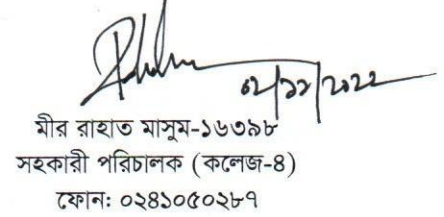 ০১/১২/২০২২
মীর রাহাত মাসুম-১৬৩৯৮
সহকারী পরিচালক (কলেজ-৪)
ফোন: ০২৪১০৫০২৮৭